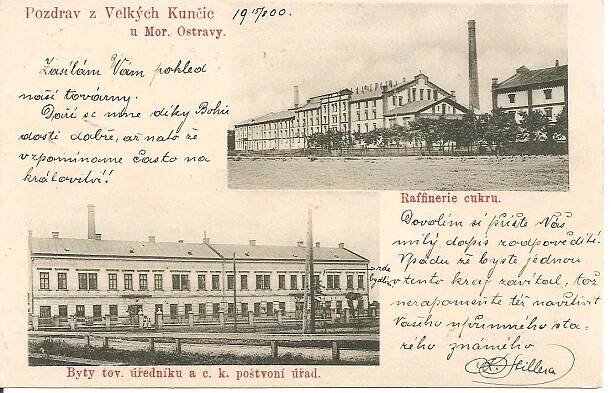 Pozdrav z Velkých Kunčic
u Mor. Ostravy.
19 15/8 00.
Zasílám Vám pohled
naší továrny.
Daří se mne díky Bohu
dosti dobře, až na to že
vzpomínáme často na
království!
Raffinerie cukru.
zde
bydlím
Byty tov. úředníku a c. k. poštovní úřad.
Dovolím si příště Váš
milý dopis zodpověděti.
Vpádu že byste jednou
v tento kraj zavítal, tož
nezapomeňte též navštívit
Vašeho upřímného sta-
rého známého
Hillera